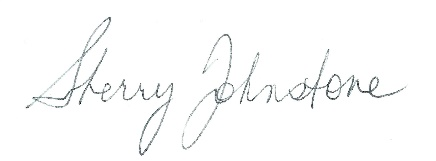 Sherry Johnstone